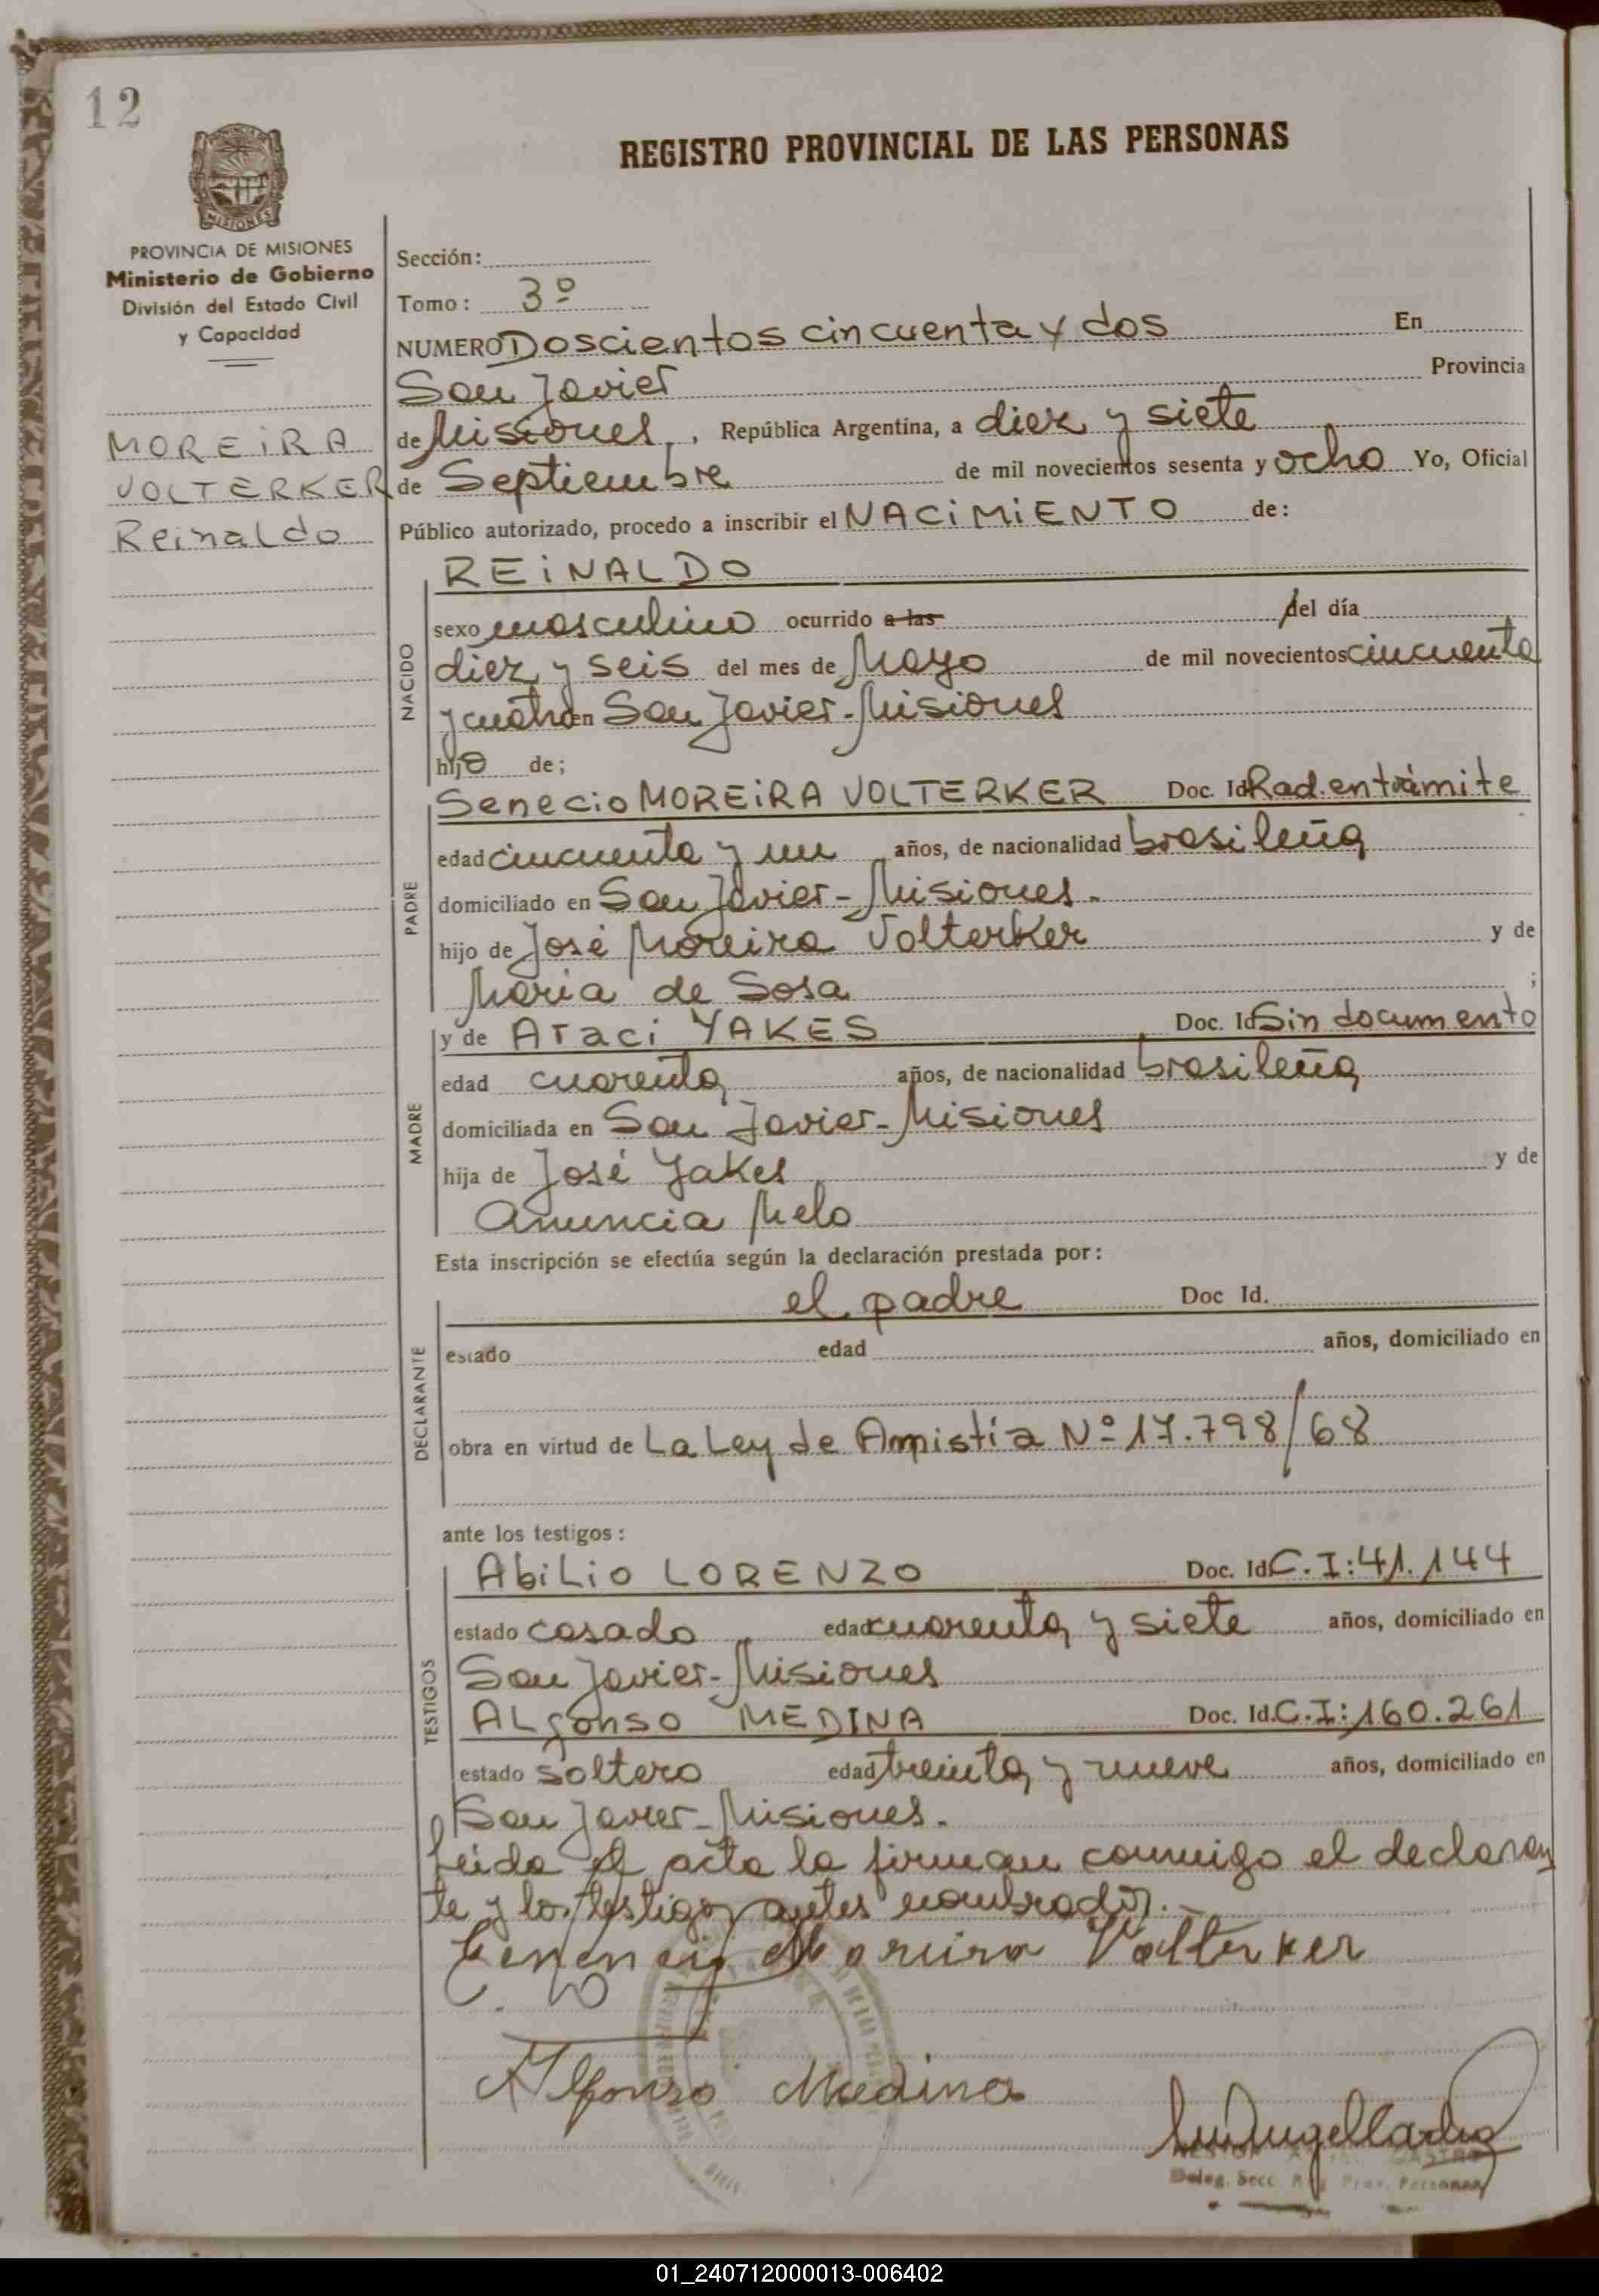 12
REGISTRO PROVINCIAL DE LAS PERSONAS
MISIONES
PROVINCIA DE MISIONES
Ministerio de Gobierno
División del Estado Civil
y Capacidad
MOREIRA
VOLTERKER
Reinaldo
Sección:
Tomo: 3º
NUMERO Doscientos cincuenta y dos En
San Javier Provincia
de Misiones, República Argentina, a diez y siete
de Septiembre de mil novecientos sesenta y ocho Yo, Oficial
Público autorizado, procedo a inscribir el NACIMIENTO de:
NACIDO
REINALDO
sexo masculino ocurrido a las del día
diez y seis del mes de Mayo de mil novecientos cincuenta
y cuatro en San Javier - Misiones
hijo de;
PADRE
Senecio MOREIRA VOLTERKER Doc. Id Rad. en trámite
edad cincuenta y un años, de nacionalidad brasileña
domiciliado en San Javier - Misiones.
hijo de José Moreira Volterker y de
María de Sosa ;
MADRE
y de Araci YAKES Doc. Id Sin documento
edad cuarenta años, de nacionalidad brasileña
domiciliada en San Javier - Misiones
hija de José Yakes y de
Anuncia Melo
Esta inscripción se efectúa según la declaración prestada por:
DECLARANTE
el padre Doc Id.
estado edad años, domiciliado en
obra en virtud de La Ley de Amnistía Nº 17.798/68
ante los testigos:
TESTIGOS
Abilio LORENZO Doc. Id C.I: 41.144
estado casado edad cuarenta y siete años, domiciliado en
San Javier - Misiones
ALfonso MEDINA Doc. Id. C.I: 160.261
estado soltero edad treinta y nueve años, domiciliado en
San Javier - Misiones.
Leida el acta la firman conmigo el declaran
te y los testigos antes nombrados.-
Moreira Volterker
Alfonso Medina
CASTRO
Deleg. Secc. Reg. Prov. Personas
01_240712000013-006402